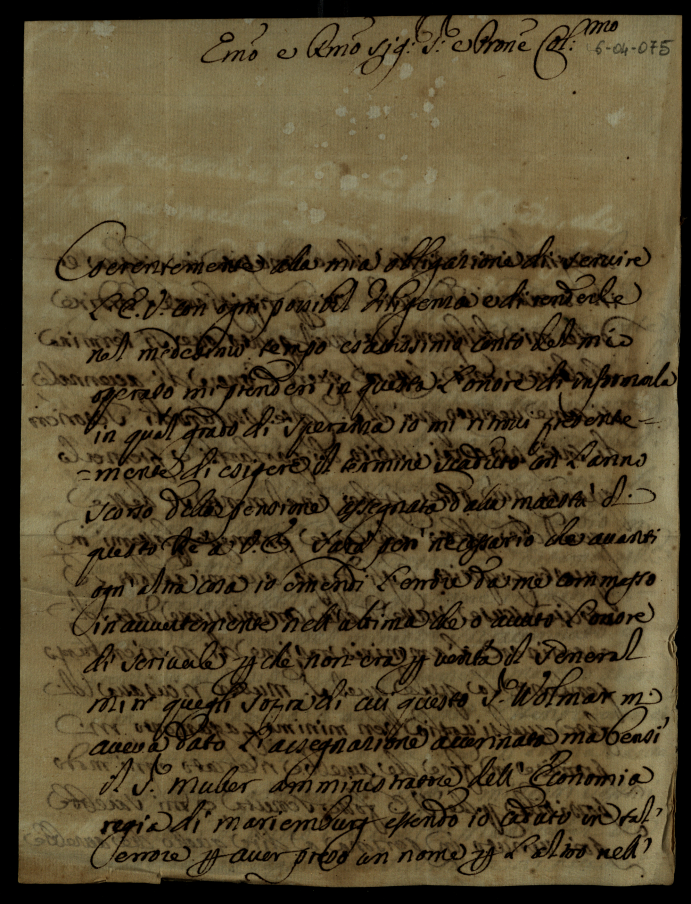 Emo e Rmo Sig.r S.r e Prone Col:mo
6-04-075
Coerentemente alla mia obbligazione di servire
L'E. V. con ogni possibil diligenza e di renderle
nel medesimo tempo esattissimo conto del mio
operado mi prenderò in questa l'onore di informarla
in qual grado di speranza io mi ritrovi presente=
=mente di esigere il termine scaduto con l'anno
scorso della pensione assegnata dalla maestà d.
questo Re a V. E. Sarà però necessario che avanti
ogn' altra cosa io emendi l'errore da me commesso
inavvertemente nell'ultima che ò avuto l'onore
di scriverle che non era il General
quegli sopra di cui questo S.r Wolmar m.
aveva dato l'assegnazione accennata ma bensì
il S.r Muber amministratore dell' Economia
regia di Mariemburg essendo io caduto in tal'
errore aver preso un nome l'altro nell'